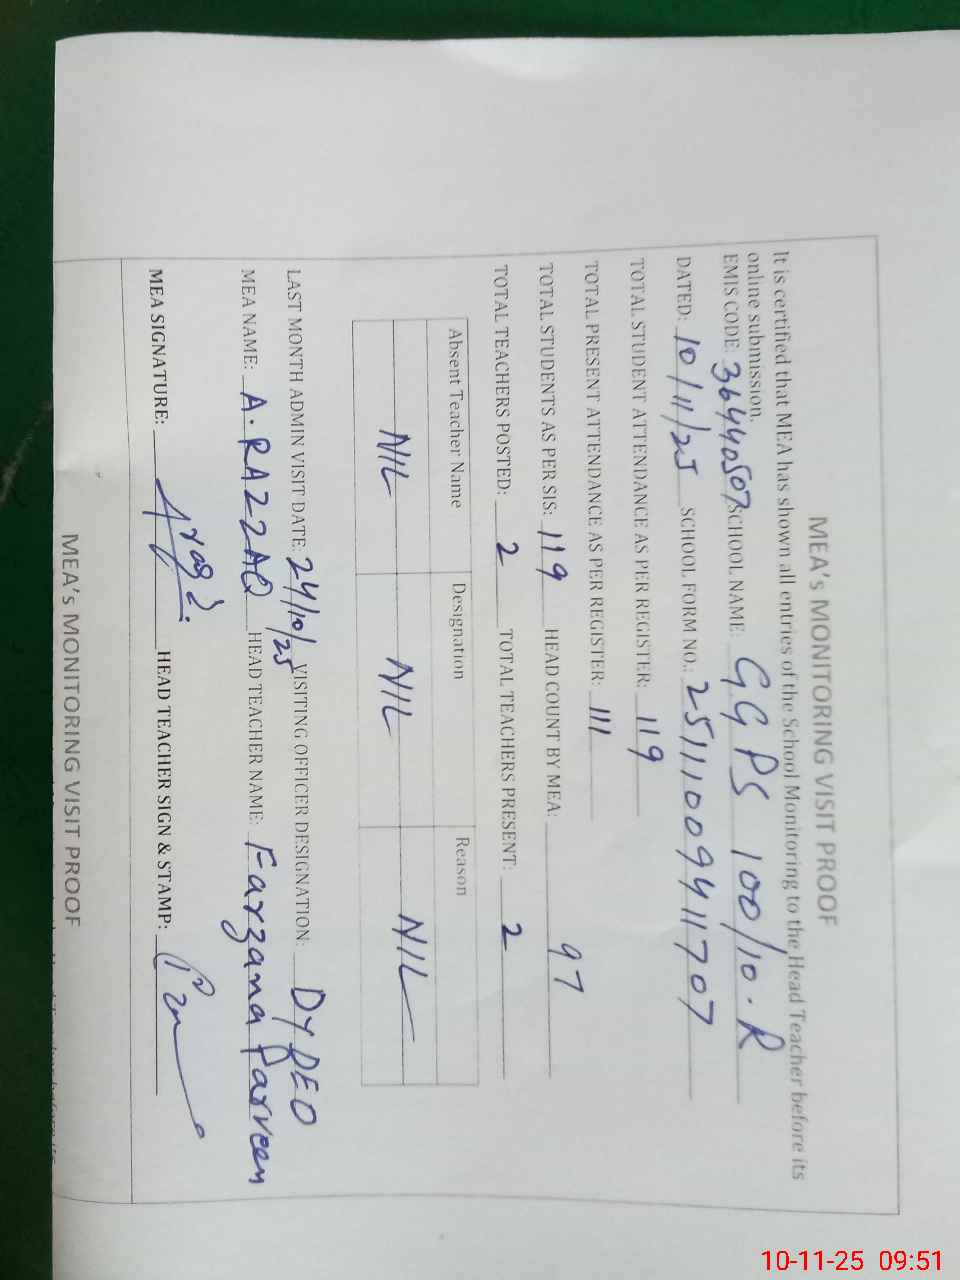 MEA's MONITORING VISIT PROOF
It is certified that MEA has shown all entries of the School Monitoring to the Head Teacher before its
online submission.
EMIS CODE: 36440507 SCHOOL NAME: GGPS 100/10.R
DATED: 10/11/25 SCHOOL FORM NO.: 25111009411707
TOTAL STUDENT ATTENDANCE AS PER REGISTER: 119
TOTAL PRESENT ATTENDANCE AS PER REGISTER: 111
TOTAL STUDENTS AS PER SIS: 119 HEAD COUNT BY MEA: 97
TOTAL TEACHERS POSTED: 2 TOTAL TEACHERS PRESENT: 2
Absent Teacher Name Designation Reason
NIL NIL NIL
LAST MONTH ADMIN VISIT DATE: 24/10/25 VISITING OFFICER DESIGNATION: DyDEO
MEA NAME: A.RAZZAQ HEAD TEACHER NAME: Farzana Parveen
MEA SIGNATURE: HEAD TEACHER SIGN & STAMP:
MEA's MONITORING VISIT PROOF
10-11-25 09:51